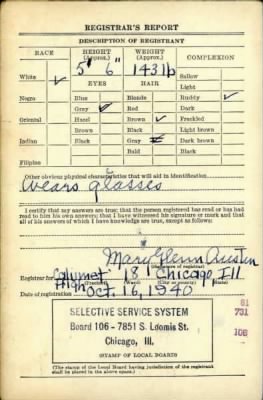 REGISTRAR'S REPORT
DESCRIPTION OF REGISTRANT
RACE HEIGHT (Approx.) WEIGHT (Approx.) COMPLEXION
5' 6" 143 lb
White ✓ Sallow
EYES HAIR Light
Negro Blue Blonde Ruddy ✓
Gray ✓ Red Dark
Oriental Hazel Brown ✓ Freckled
Brown Black Light brown
Indian Black Gray Dark brown
Bald Black
Filipino
Other obvious physical characteristics that will aid in identification
wears glasses
I certify that my answers are true; that the person registered has read or has had
read to him his own answers; that I have witnessed his signature or mark and that
all of his answers of which I have knowledge are true, except as follows:
Mary Glenn Austin
(Signature of registrar)
Registrar for Calumet High 18 Chicago, Ill
(Precinct) (Ward) (City or county) (State)
Date of registration Oct. 16, 1940
81
731
106
SELECTIVE SERVICE SYSTEM
Board 106 - 7851 S. Loomis St.
Chicago, Ill.
STAMP OF LOCAL BOARDS
(The stamp of the Local Board having jurisdiction of the registrant
shall be placed in the above space.)